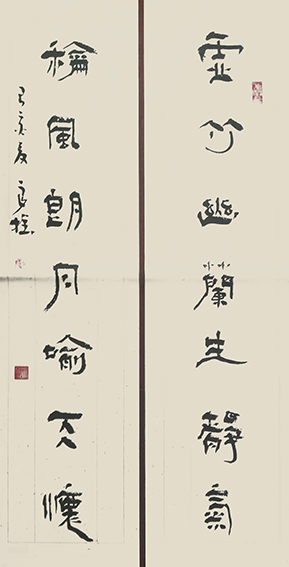 虛竹幽蘭生靜氣
龢風朗月喻天懷
己亥夏